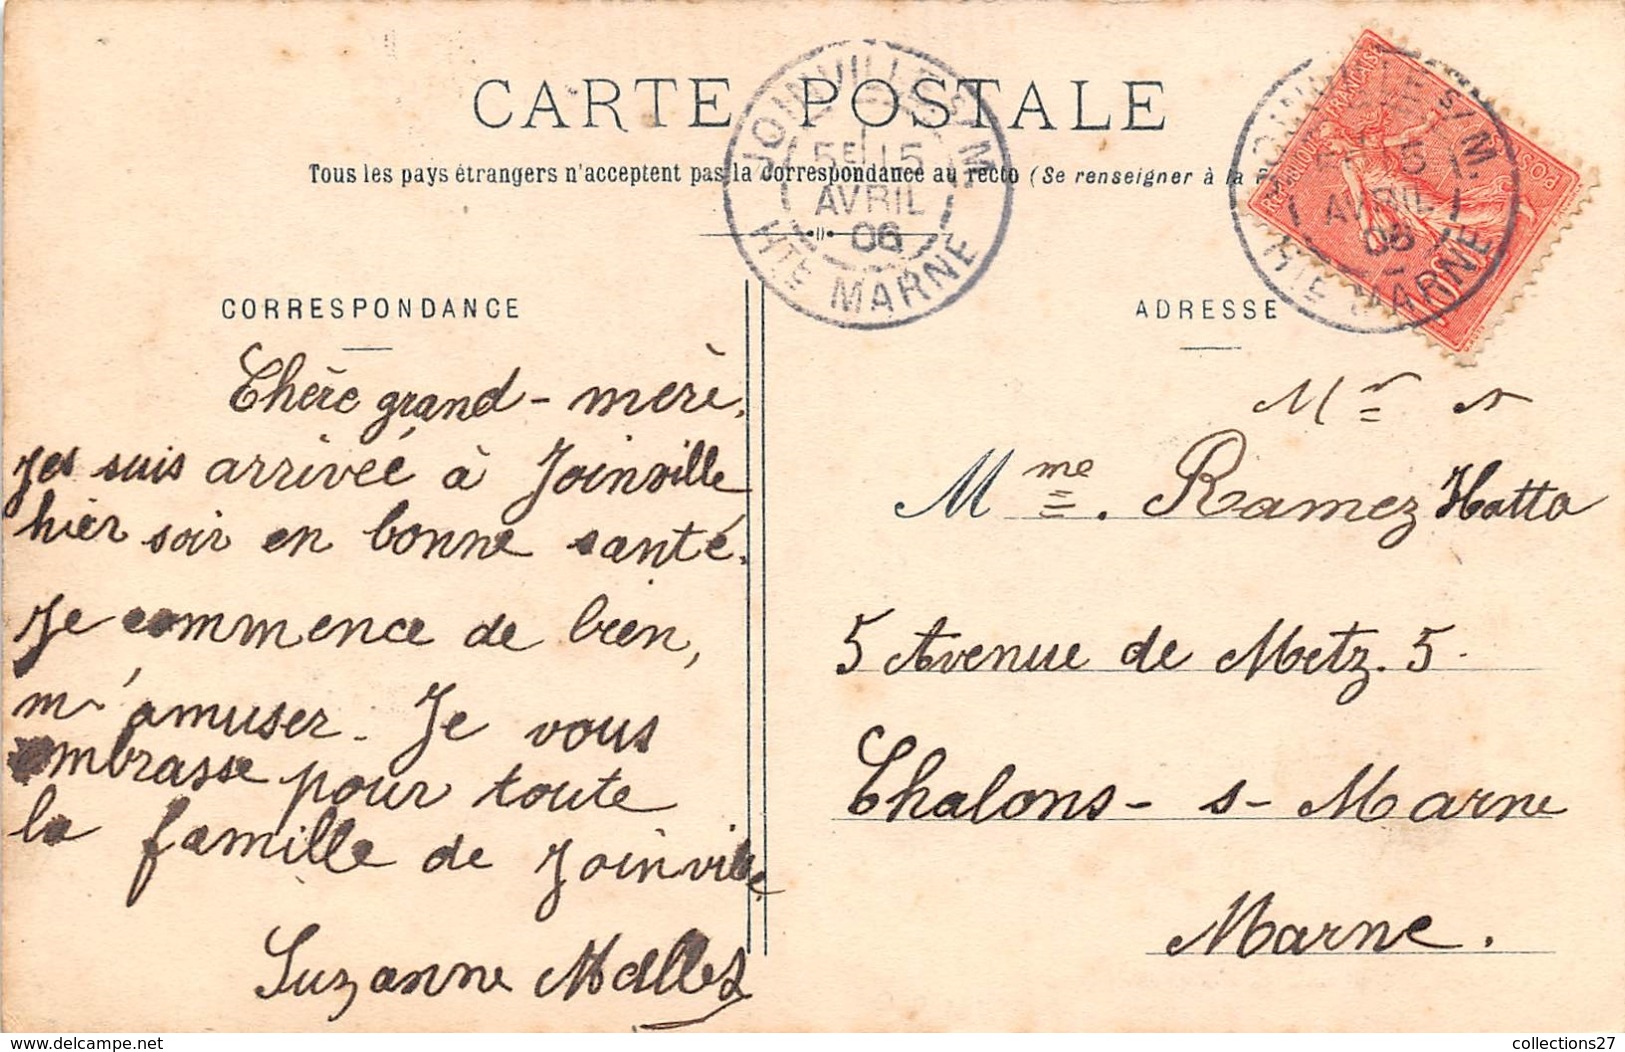 CARTE POSTALE
Tous les pays étrangers n'acceptent pas la correspondance au recto (Se renseigner à la
JOINVILLE S/M.
5E 15
AVRIL
06
HTE MARNE
JOINVILLE S/M.
15
AVRIL
06
HTE MARNE
RÉPUBLIQUE FRANÇAISE
POSTES
10
CORRESPONDANCE
Chère grand-mère.
Je suis arrivée à Joinville
hier soir en bonne santé.
Je commence de bien,
m'amuser. Je vous
embrasse pour toute
la famille de Joinville
Suzanne
ADRESSE
Mr
Mme. Ramez Hatta
5 Avenue de Metz. 5.
Chalons-s-Marne
Marne.
collections27